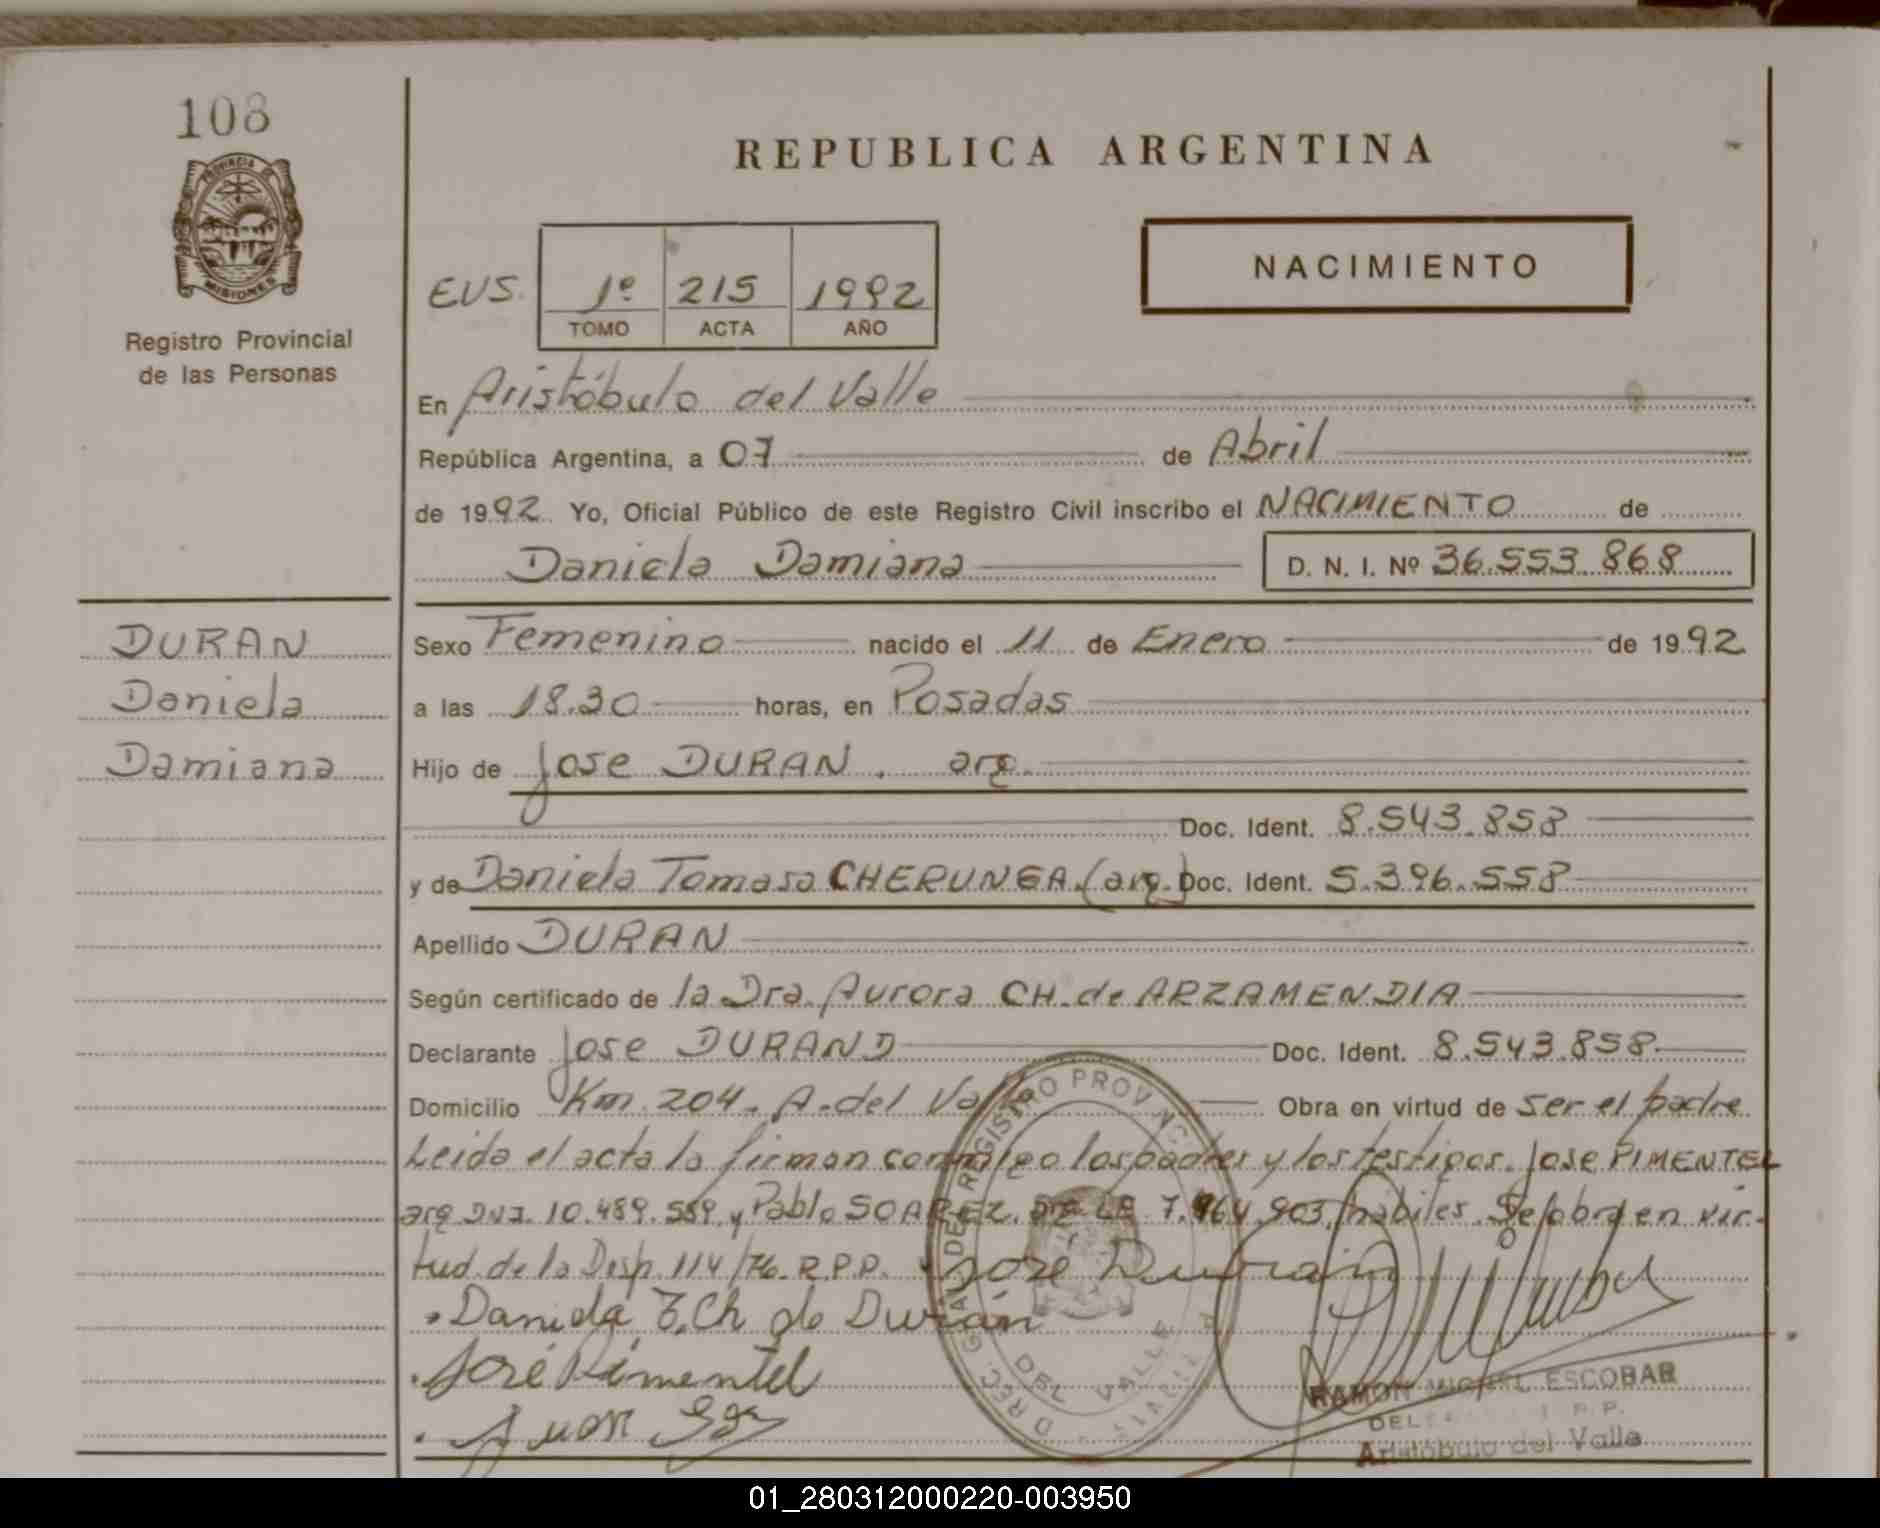 108
PROVINCIA DE
MISIONES
Registro Provincial
de las Personas
DURAN
Daniela
Damiana
REPUBLICA ARGENTINA
EUS. 1º 215 1992
TOMO ACTA AÑO
NACIMIENTO
En Aristóbulo del Valle
República Argentina, a 07 de Abril
de 1992 Yo, Oficial Público de este Registro Civil inscribo el NACIMIENTO de
Daniela Damiana D. N. I. Nº 36.553.868
Sexo Femenino nacido el 11 de Enero de 1992
a las 18.30 horas, en Posadas
Hijo de Jose DURAN. arg.
Doc. Ident. 8.543.858
y de Daniela Tomasa CHERUNGA. (arg.) Doc. Ident. 5.396.558
Apellido DURAN
Según certificado de la Dra. Aurora CH. de ARZAMENDIA
Declarante Jose DURAND Doc. Ident. 8.543.858
Domicilio Km. 204. A. del Valle Obra en virtud de ser el padre
Leida el acta la firman conmigo los padres y los testigos. Jose PIMENTEL
arg DNI. 10.489.559 y Pablo SOAREZ. LE 7.964.903, habiles. Se obra en vir-
tud de la Disp. 114/76. R.P.P. Jose Duran
Daniela T. Ch de Durán
José Pimentel
RAMON MIGUEL ESCOBAR
R. P.
Aristóbulo del Valle
DIREC. GRAL DEL REGISTRO PROVINC
DEL VALLE
01_280312000220-003950